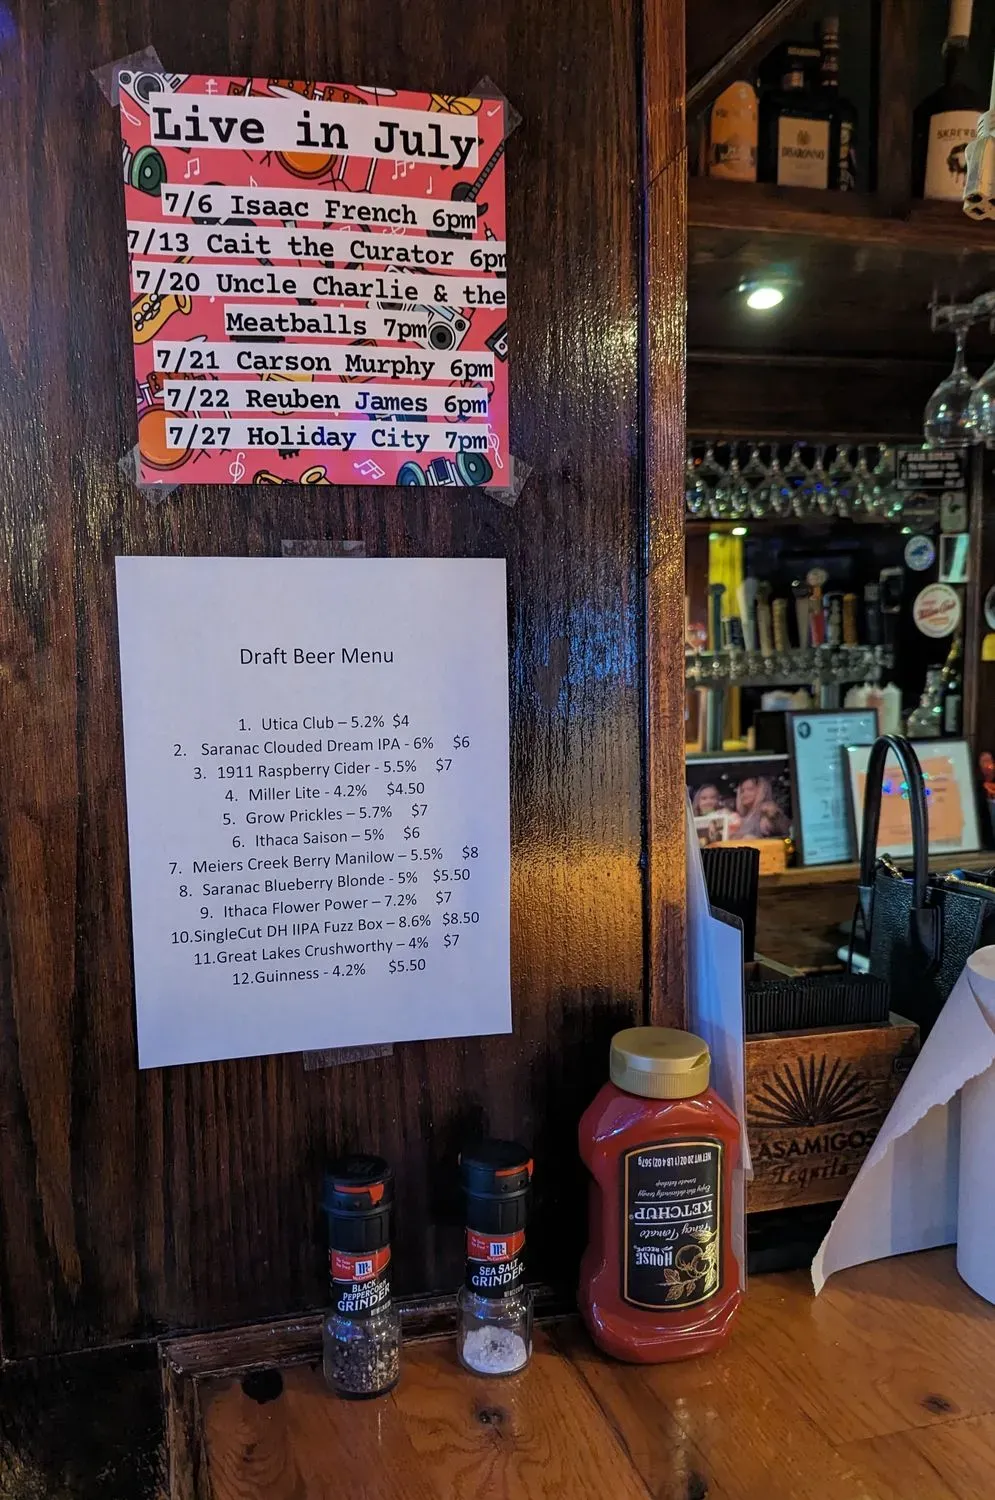 Live in July
7/6 Isaac French 6pm
7/13 Cait the Curator 6pm
7/20 Uncle Charlie & the
Meatballs 7pm
7/21 Carson Murphy 6pm
7/22 Reuben James 6pm
7/27 Holiday City 7pm
Draft Beer Menu
1. Utica Club – 5.2% $4
2. Saranac Clouded Dream IPA - 6% $6
3. 1911 Raspberry Cider - 5.5% $7
4. Miller Lite - 4.2% $4.50
5. Grow Prickles – 5.7% $7
6. Ithaca Saison – 5% $6
7. Meiers Creek Berry Manilow – 5.5% $8
8. Saranac Blueberry Blonde - 5% $5.50
9. Ithaca Flower Power – 7.2% $7
10.SingleCut DH IIPA Fuzz Box – 8.6% $8.50
11.Great Lakes Crushworthy – 4% $7
12.Guinness - 4.2% $5.50
DISARONNO
McCormick
BLACK
PEPPERCORN
GRINDER
McCormick
SEA SALT
GRINDER
HOUSE
RECIPE
Fancy Tomato
KETCHUP
tomato ketchup
NET WT 20 OZ (1 LB 4 OZ) 567g
ASAMIGOS
Tequila